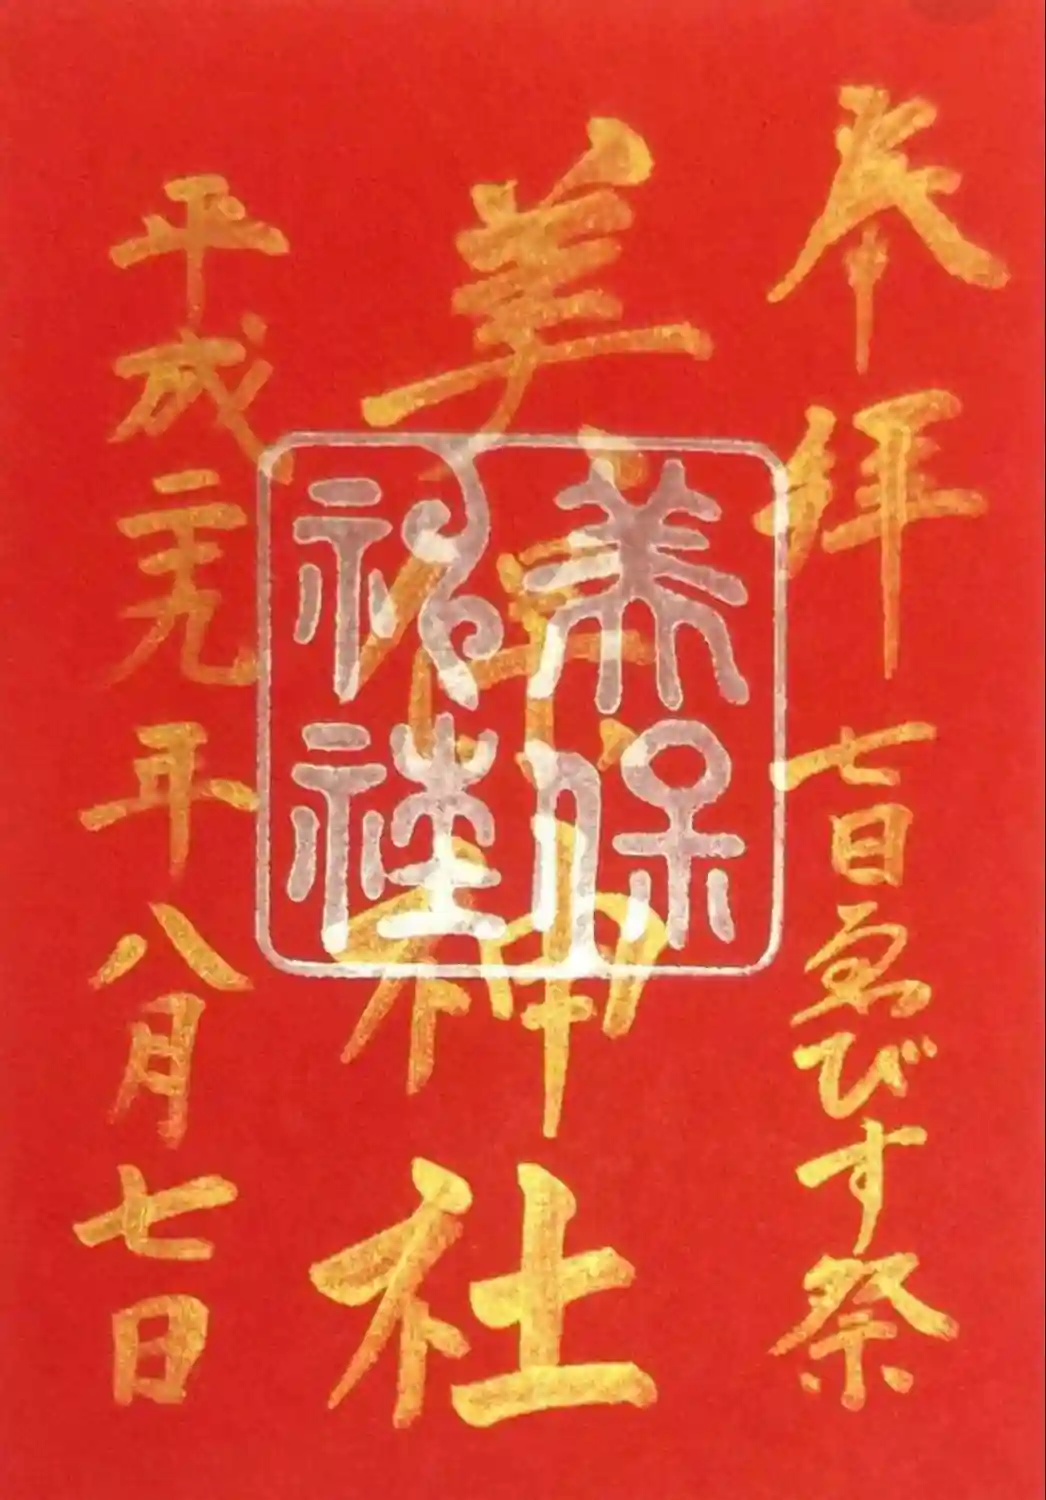 奉拝 七日ゑびす祭
美保神社
平成二十九年八月七日
美保
神社